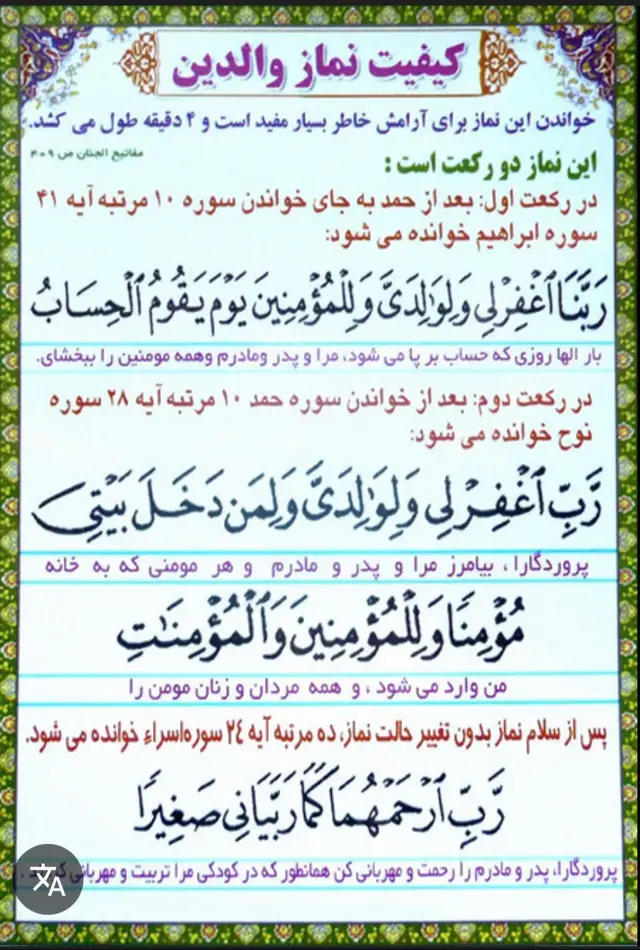 کیفیت نماز والدین
خواندن این نماز برای آرامش خاطر بسیار مفید است و ۴ دقیقه طول می کشد.
مفاتیح الجنان ص ۴۰۹
این نماز دو رکعت است :
در رکعت اول: بعد از حمد به جای خواندن سوره ۱۰ مرتبه آیه ۴۱
سوره ابراهیم خوانده می شود:
رَبَّنَا ٱغْفِرْلِی وَلِوَٰلِدَیَّ وَلِلْمُؤْمِنِینَ یَوْمَ یَقُومُ ٱلْحِسَابُ
بار الها روزی که حساب بر پا می شود، مرا و پدر ومادرم وهمه مومنین را ببخشای.
در رکعت دوم: بعد از خواندن سوره حمد ۱۰ مرتبه آیه ۲۸ سوره
نوح خوانده می شود:
رَّبِّ ٱغْفِرْلِی وَلِوَٰلِدَیَّ وَلِمَن دَخَلَ بَیْتِیَ
پروردگارا، بیامرز مرا و پدر و مادرم و هر مومنی که به خانه
مُؤْمِنًا وَلِلْمُؤْمِنِینَ وَٱلْمُؤْمِنَٰتِ
من وارد می شود ، و همه مردان و زنان مومن را
پس از سلام نماز بدون تغییر حالت نماز، ده مرتبه آیه ۲۴ سوره‌اسراء خوانده می شود.
رَّبِّ ٱرْحَمْهُمَا كَمَا رَبَّیَانِی صَغِیرًا
پروردگارا، پدر و مادرم را رحمت و مهربانی کن همانطور که در کودکی مرا تربیت و مهربانی